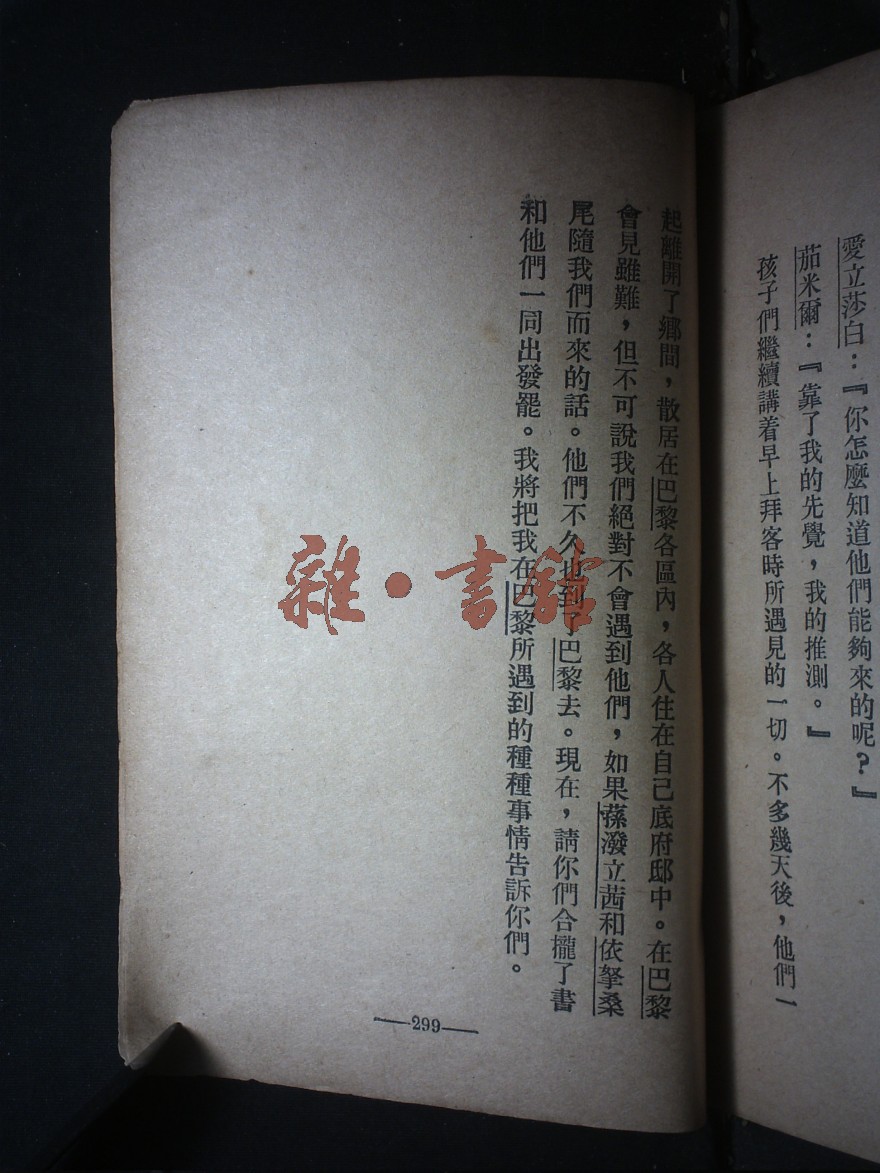 愛立莎白：『你怎麼知道他們能夠來的呢？』
茄米爾：『靠了我的先覺，我的推測。』
孩子們繼續講着早上拜客時所遇見的一切。不多幾天後，他們一
起離開了鄉間，散居在巴黎各區內，各人住在自己底府邸中。在巴黎
會見雖難，但不可說我們絕對不會遇到他們，如果蓀潑立茜和依孥桑
尾隨我們而來的話。他們不久也到了巴黎去。現在，請你們合攏了書
和他們一同出發罷。我將把我在巴黎所遇到的種種事情告訴你們。
—299—
雜·書館